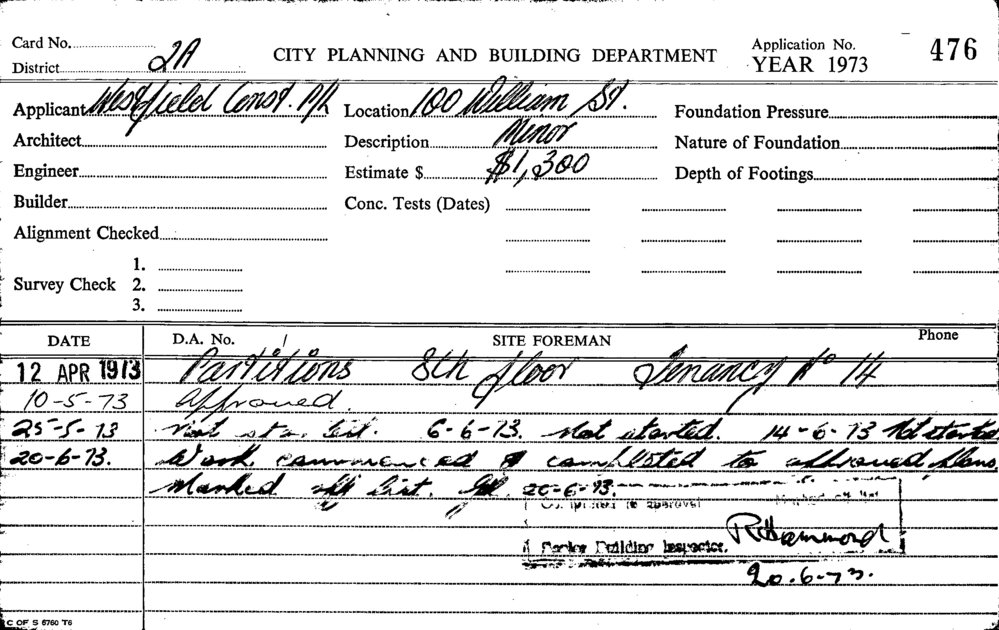 Card No.
District 2A
CITY PLANNING AND BUILDING DEPARTMENT
Application No. 476
YEAR 1973
Applicant Westfield Const. P/L Location 100 William St. Foundation Pressure
Architect Description Minor Nature of Foundation
Engineer Estimate $ $1,300 Depth of Footings
Builder Conc. Tests (Dates)
Alignment Checked
1.
Survey Check 2.
3.
DATE D.A. No. / SITE FOREMAN Phone
12 APR 1973 Partitions 8th floor Tenancy No 14
10-5-73 Approved.
25-5-73 Not sta. 6-6-73. Not started. 14-6-73 Not started
20-6-73. Work commenced & completed to approved plans
Marked off list. 20-6-73.
Completed to approval Marked off list
Senior Building Inspector. RHammond
20.6-73.
C OF S 5760 T6